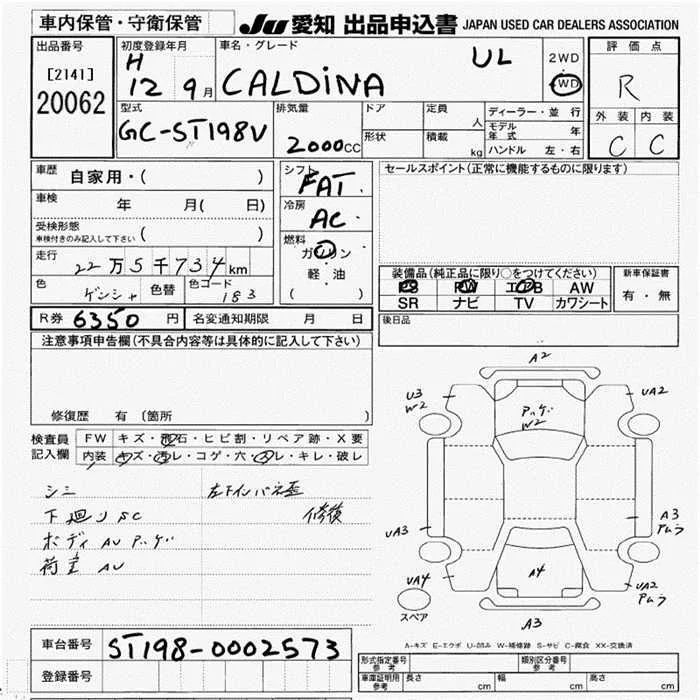 車内保管・守衛保管
JU 愛知 出品申込書 JAPAN USED CAR DEALERS ASSOCIATION
出品番号
[2141]
20062
初度登録年月
H 12 9月
車名・グレード
CALDINA UL
2WD
4WD
評価点
R
外装 内装
C C
型式
GC-ST198V
排気量
2000cc
ドア
形状
定員 人
積載 kg
ディーラー・並行
モデル年式 年
ハンドル 左・右
車歴 自家用・( )
車検 年 月( 日)
受検形態
車検付きのみ記入して下さい ( )
走行
22万5千734km
色 ゲンシャ 色替 色コード 183
シフト
FAT
冷房
AC
燃料
ガソリン
軽・油
( )
セールスポイント(正常に機能するものに限ります)
装備品(純正品に限り○をつけてください)
PS PW エアB AW
SR ナビ TV カワシート
新車保証書
有・無
後日品
R券 6350円 名変通知期限 月 日
注意事項申告欄(不具合内容等は具体的に記入して下さい)
修復歴 有 (箇所 )
検査員記入欄
FW キズ・飛石・ヒビ割・リペア跡・X要
内装 キズ・汚レ・コゲ・穴・スレ・キレ・破レ
シミ
下廻りSC
ボディAUアッゲ
荷室AU
左下インパネ歪
修復
A2
U3
W2
UA2
アッゲ
W2
UA3
A3
アムラ
UA4
A4
UA2
アムラ
スペア
A3
A-キズ E-エクボ U-凹み W-補修跡 S-サビ C-腐食 XX-交換済
車台番号 ST198-0002573
登録番号
型式指定番号
参考
類別区分番号
参考
車庫証明用
参考
長さ cm 幅 cm 高さ cm